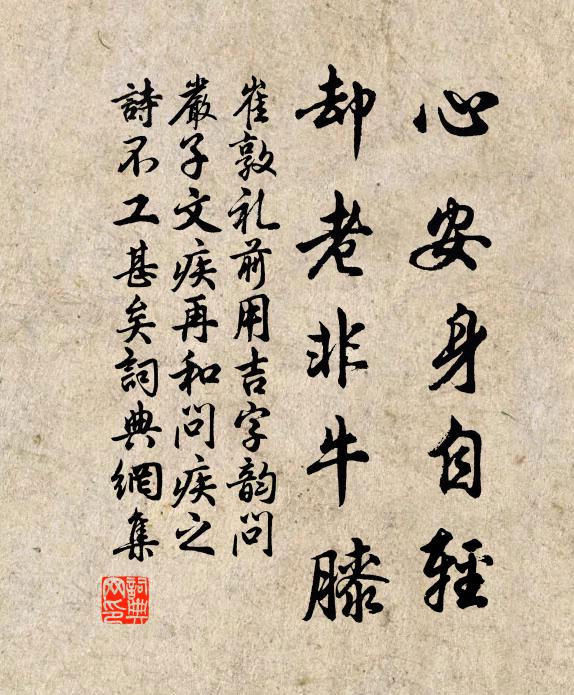 心安身自輕
却老非牛膝
崔敦礼前用吉字韵問
嚴子文疾再和問疾之
詩不工甚矣詞典網集
詞典
网印